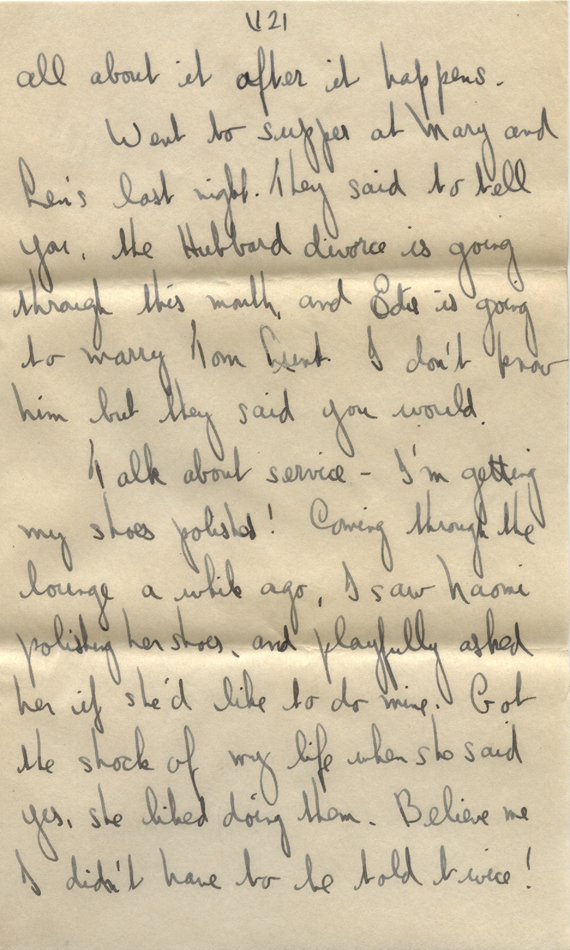 21
all about it after it happens.
Went to supper at Mary and
Len's last night. They said to tell
you, the Hubbard divorce is going
through this month, and Edie is going
to marry Tom Lunt. I don't know
him but they said you would.
Talk about service - I'm getting
my shoes polished! Coming through the
lounge a while ago, I saw Naomi
polishing her shoes, and playfully asked
her if she'd like to do mine. Got
the shock of my life when she said
yes, she liked doing them. Believe me
I didn't have to be told twice!